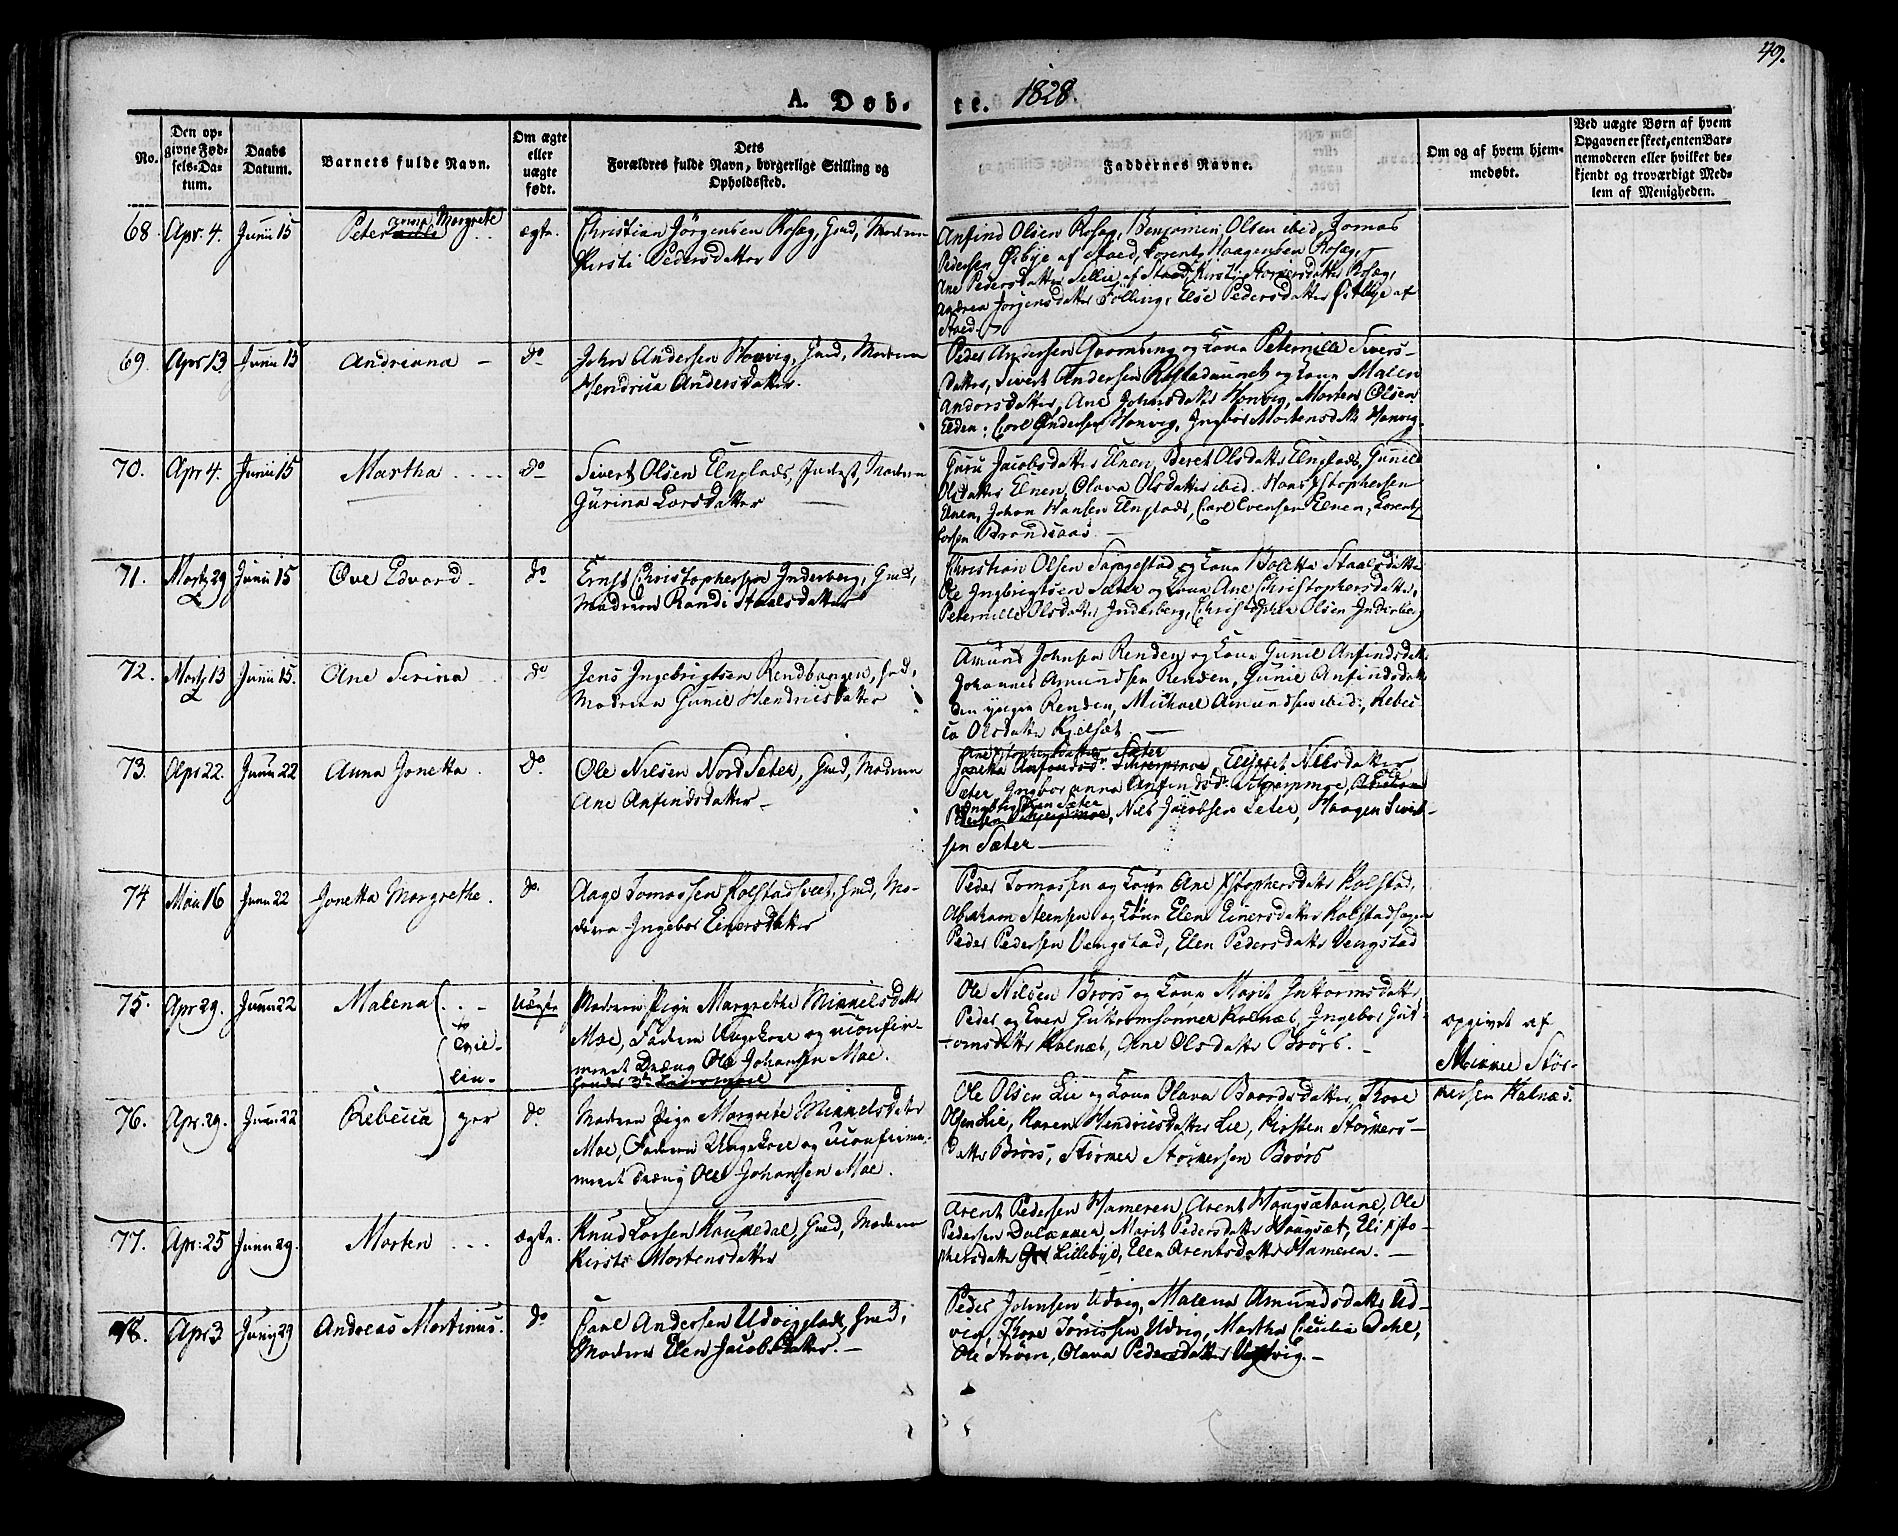 49.
A. Døb- te. 1828.
No.
Den op-
givne Fød-
sels-Da-
tum.
Daabs
Datum.
Barnets fulde Navn.
Om ægte
eller
uægte
født.
Dets
Forældres fulde Navn, borgerlige Stilling og
Opholdssted.
Faddernes Navne.
Om og af hvem hjem-
medøbt.
Ved uægte Børn af hvem
Opgaven er skeet, enten Bar-
nemoderen eller hvilket be-
kjendt og troværdigt Med-
lem af Menigheden.
68. Apr. 4. Junii 15 Peter anna Margrete ægte.
Christian Jörgensen Rosæg, Gmd, Modren
Kirsti Pedersdatter
Anfind Olsen Rosæg, Benjamin Olsen ibid, Tomas
Pedersen Østbye af Stoed, Lorentz Haagensen Rosæg,
Ane Pedersdatter Sellie af Stoed, Rosæg,
Andrea Jörgensdatter Fölling, Else Pedersdatter Østbye af
Stoed.
69. Apr 13 Junii 15 Andrianna — do
John Andersen Honvig, Gmd, Modren
Hendrica Andersdatter.
Peder Andersen og Kone Peternille Sivers-
datter, Sivert Andersen og Kone Malen
Andersdatter, Ane Johnsdatter Honvig, Morten Olsen
Elden, Carl Andersen Honvig, Ingbor Mortensdatt Honvig.
70. Apr 4. Junii 15 Martha do
Sivert Olsen Elnplads, Inderst, Modren
Gurina Larsdatter
Guru Jacobsdatter Elnen, Beret Olsdatter Elnplads, Gunild
Olsdatter Elnen, Olava Olsdatter ibid. Hans Xstophersen
Elnen, Johan Hansen Elnplads, Carl Evensen Elnen, Lorentz
Larsen Brandsaas.
71. Martz 29 Junii 15 Ove Edvard do
Ernst Christophersen Inderberg, Gmd,
Modren Randi Staalsdatter
Christian Olsen og Kone Boletta Staalsdatter
Ole Ingbrigtsen Sæter og Kone Ane Christophersdatter,
Peternille Olsdatter Inderberg, Christopher Olsen Inderberg
72. Martz 13 Junii 15. Ane Serina do
Jens Ingebrigtsen Rendbangen, Gmd,
Modren Gunil Hendricsdatter
Amund Johnsen Renden og Kone Gunil Anfindsdatt
Johannes Amundsen Renden, Gunil Anfindsdatt
den yngre Renden, Michael Amundsen ibid, Rebec-
ca Olsdatter Kjelsæt
73. Apr 22. Junii 22 Anna Jonetta do
Ole Nilsen Nord Seter, Gmd, Modren
Ane Anfindsdatter
Ane Xstophersdatter Sæter
Jonetta Elisabet Nilsdatter
Sæter, Ingbor anna Anfindsdr
Ingebrigtsen Sæter
Nils Jacobsen Sæter, Haagen Siver-
sen Sæter
74 Maii 16 Junii 22 Jonetta Margrethe. do.
Aage Tomassen Kolstadsveet, Gmd, Mo-
deren Ingebor Einersdatter
Peder Tomassen og Kone Ane Xstophersdatter Kolstad,
Abraham Steensen og Kone Elen Einersdatter
Peder Pedersen Vengstad, Elen Pedersdatter Vengstad
75. Apr 29. Junii 22 Malena Uægte
to
tvil-
lin-
Modren Pign Margrethe Minnelsdatter
Moe, Fadren Ungekarl og uconfir-
meret Dræng Ole Johansen Moe.
Ole Nilsen Brörs og Kone Marit Guttormsdatter,
Peder og Even Guttormsønner Kolnæb, Ingebor Gut-
tormsdatter Kolnæb, Ane Olsdatter Brörs.
opgivet af
Minnel Stör-
kersen Kalnæs.
76. Apr. 29. Junii 22 Rebecca ger do
Modren Pign Margrete Minnelsdatter
Moe, Fadren Ungekarl og uconfir-
meret Dræng Ole Johansen Moe.
Ole Olsen Lie og Kone Olava Baardsdatter, Thore
Olsen Lie, Karen Hendricsdatter Lie, Kirsten Störkers-
datter Brörs, Störker Störkersen Brörs
77. Apr: 25 Junii 29. Morten ægte.
Knud Larsen Gmd, Modren
Kirsti Mortensdatter
Arent Pedersen Hameren, Arent Haugsætaune, Ole
Pedersen Marit Pedersdatter Haugsæt, Eli Xsto-
phersdatter Lillebyd, Elen Arentsdatter Hameren.
78. Apr 3 Junij 29 Andreas Martinus. do
Carl Andersen Udvigplads, Gmd,
Modren Elen Jacobsdatter.
Peder Johnsen Udvig, Malena Amundsdatter Ud-
vig, Thore Udvig, Martha Cecilia Dahl,
Ole Ström, Olava Pedersdatter Udvig.